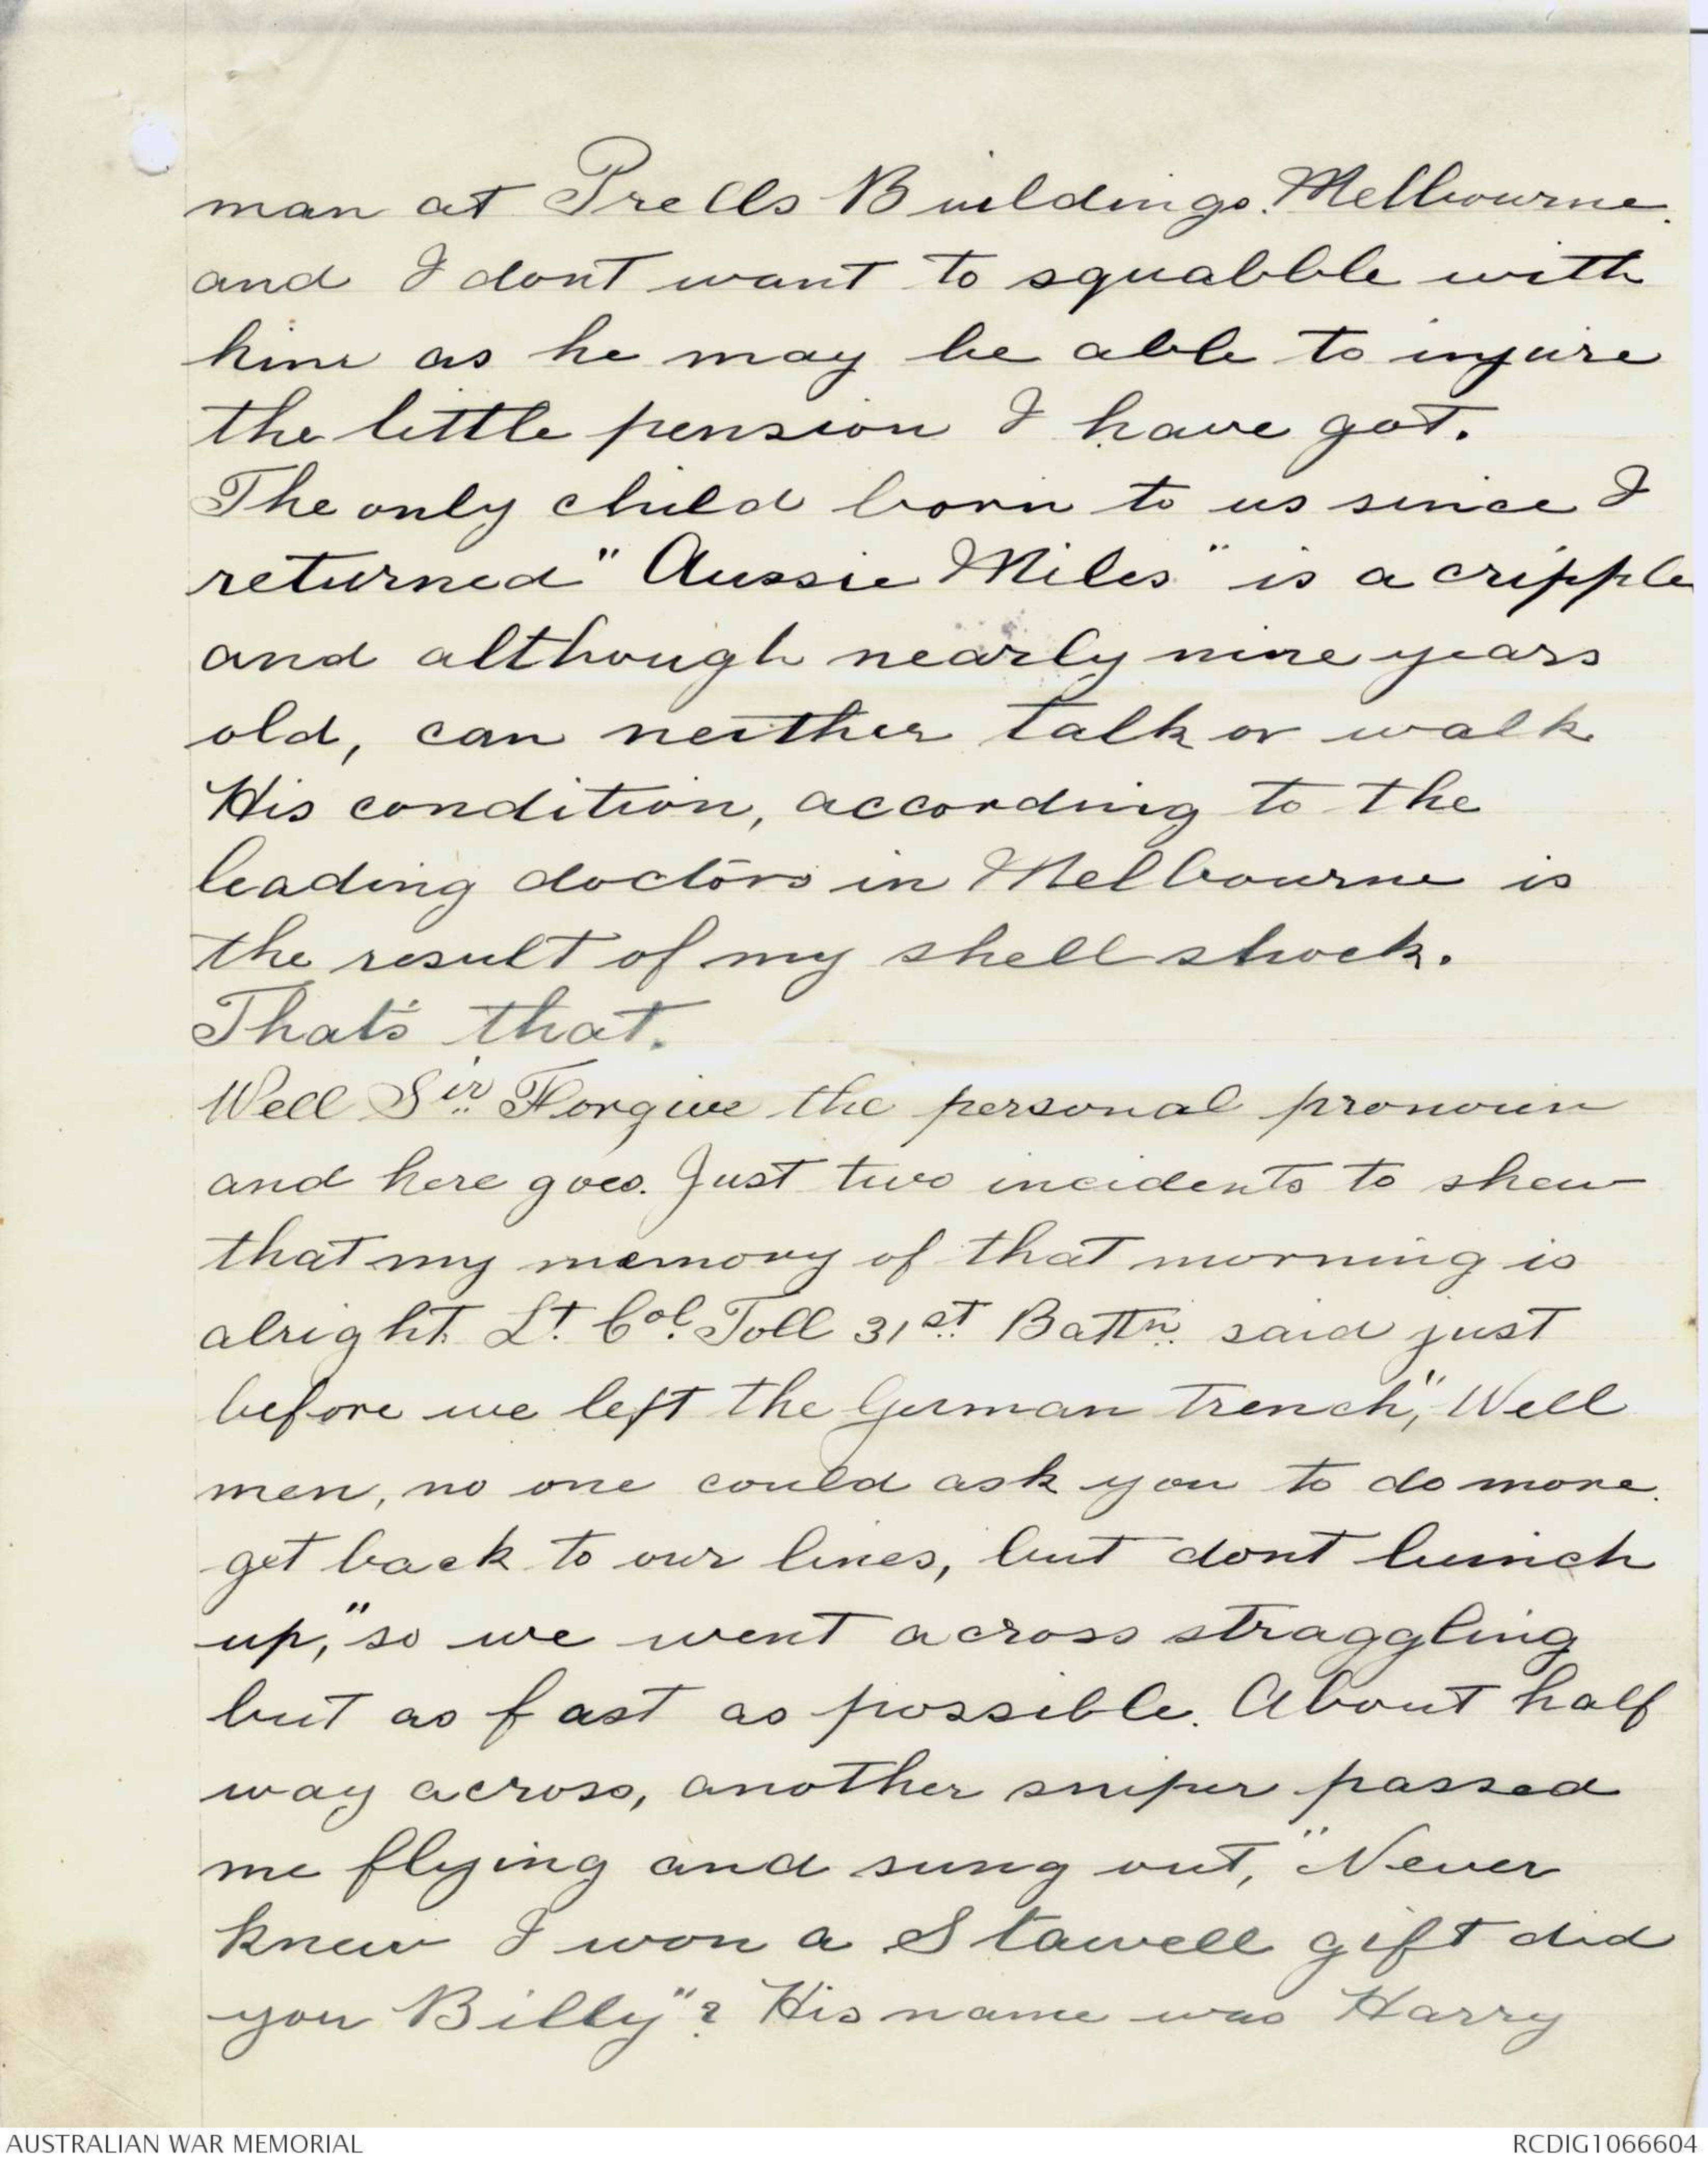 man at Prells Buildings. Melbourne.
and I dont want to squabble with
him as he may be able to injure
the little pension I have got.
The only child born to us since I
returned "Aussie Miles" is a cripple
and although nearly nine years
old, can neither talk or walk
His condition, according to the
leading doctors in Melbourne is
the result of my shell shock.
That's that.
Well Sir. Forgive the personal pronoun
and here goes. Just two incidents to shew
that my memory of that morning is
alright. Lt. Col. Toll 31st. Battn. said just
before we left the German trench, "Well
men, no one could ask you to do more.
get back to our lines, but dont bunch
up," so we went across straggling
but as fast as possible. About half
way across, another sniper passed
me flying and sung out, "Never
knew I won a Stawell gift did
you Billy"? His name was Harry
AUSTRALIAN WAR MEMORIAL
RCDIG1066604